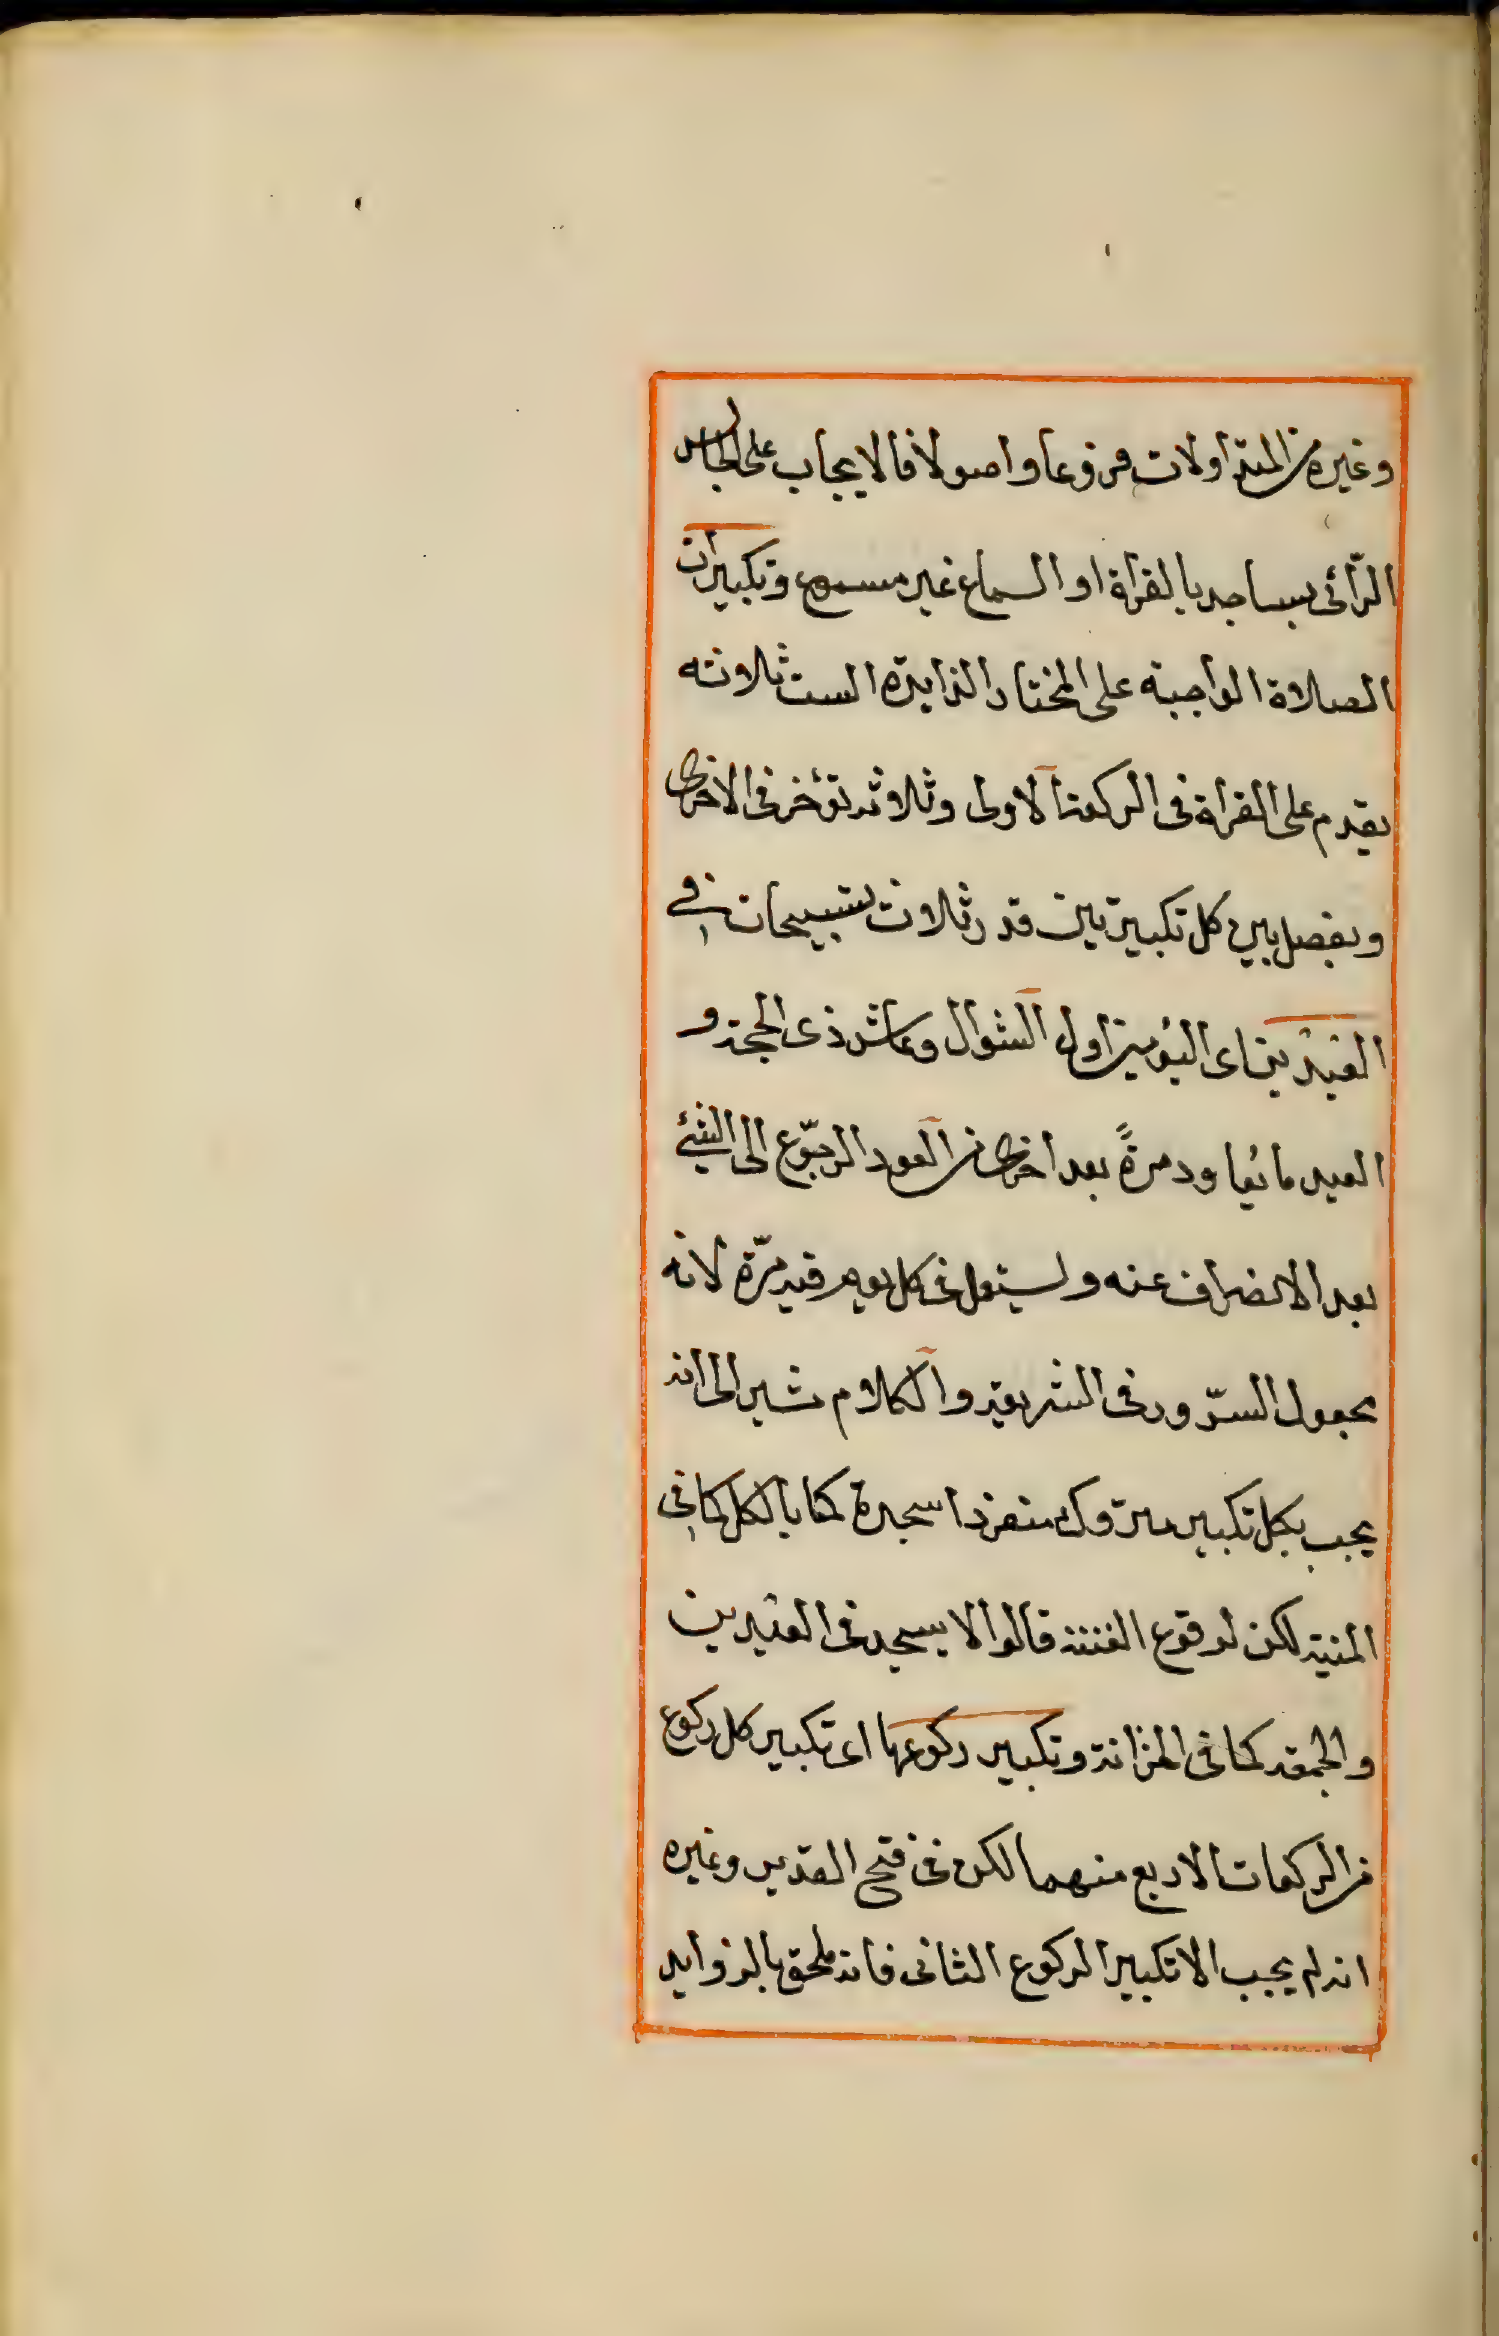 وغيره من المتداولات فروعا واصولا فالايجاب على الناس
الرائى بساجد بالقرأة او السماع غير مسموع وتكبيرات
الصلاة الواجبة على المختار الزايدة الست ثلاثة
يقدم على القرأة فى الركعة الاولى وثلاثة تؤخر فى الاخرى
ويفصل بين كل تكبيرتين قدر ثلاث تسبيحات فى
العيدين اى اليومين اول الشوال وعاشر ذى الحجة و
العيد ما يعاود مرةً بعد اخرى من العود الرجوع الى الشئ
بعد الانصراف عنه ويستعمل فى كل يوم فيه مسرّة لانه
مجعول السرور فى الشريعة والكلام مشير الى انه
يجب بكل تكبير متروك منفردا سجدة كما بالكل كما فى
المنية لكن لوقوع الفتنة قالوا لا يسجد فى العيدين
والجمعة كما فى الخزانة وتكبير ركوعها اى تكبير كل ركوع
من الركعات الاربع منهما لكن فى فتح القدير وغيره
انه لم يجب الا تكبير الركوع الثانى فانه ملحق بالزوايد